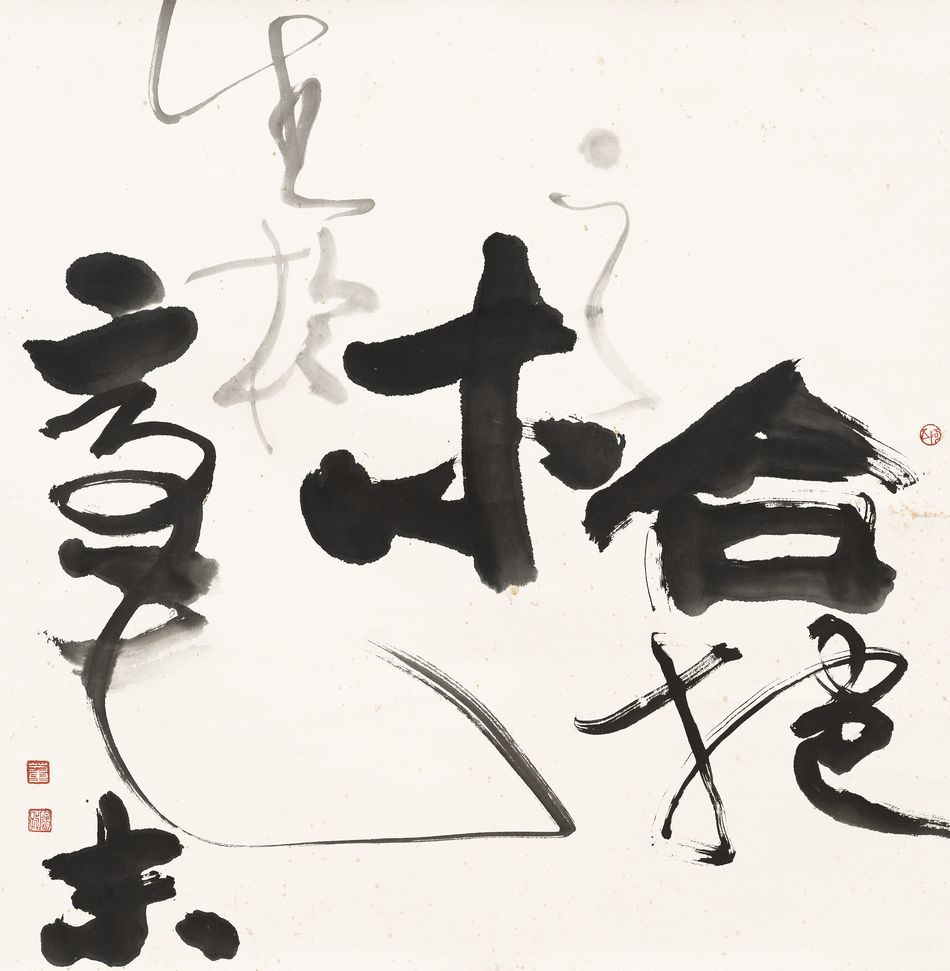 合抱
之木
生於
毫末